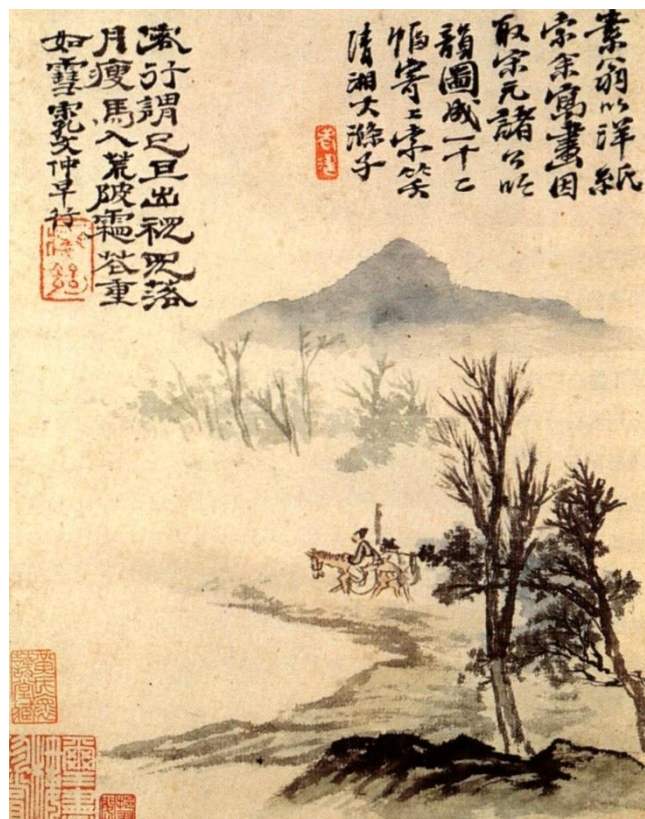 素翁以洋紙
索余寫畫因
取宋元諸公吟
韻圖成一十二
幅寄上索笑
清湘大滌子
客行謂已旦出視見落
月瘦馬入荒陂霜花重
如雪孔文仲早行